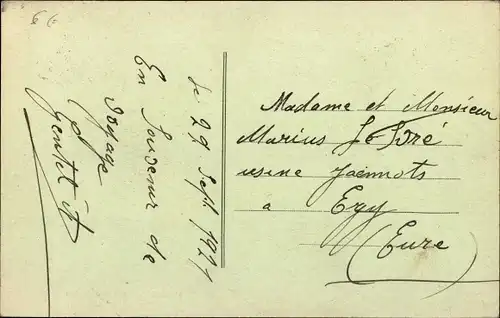 Le 29 Sept 1921
En Souvenir de
voyage
Madame et Monsieur
Marius Le
usine
à Ezy
(Eure)